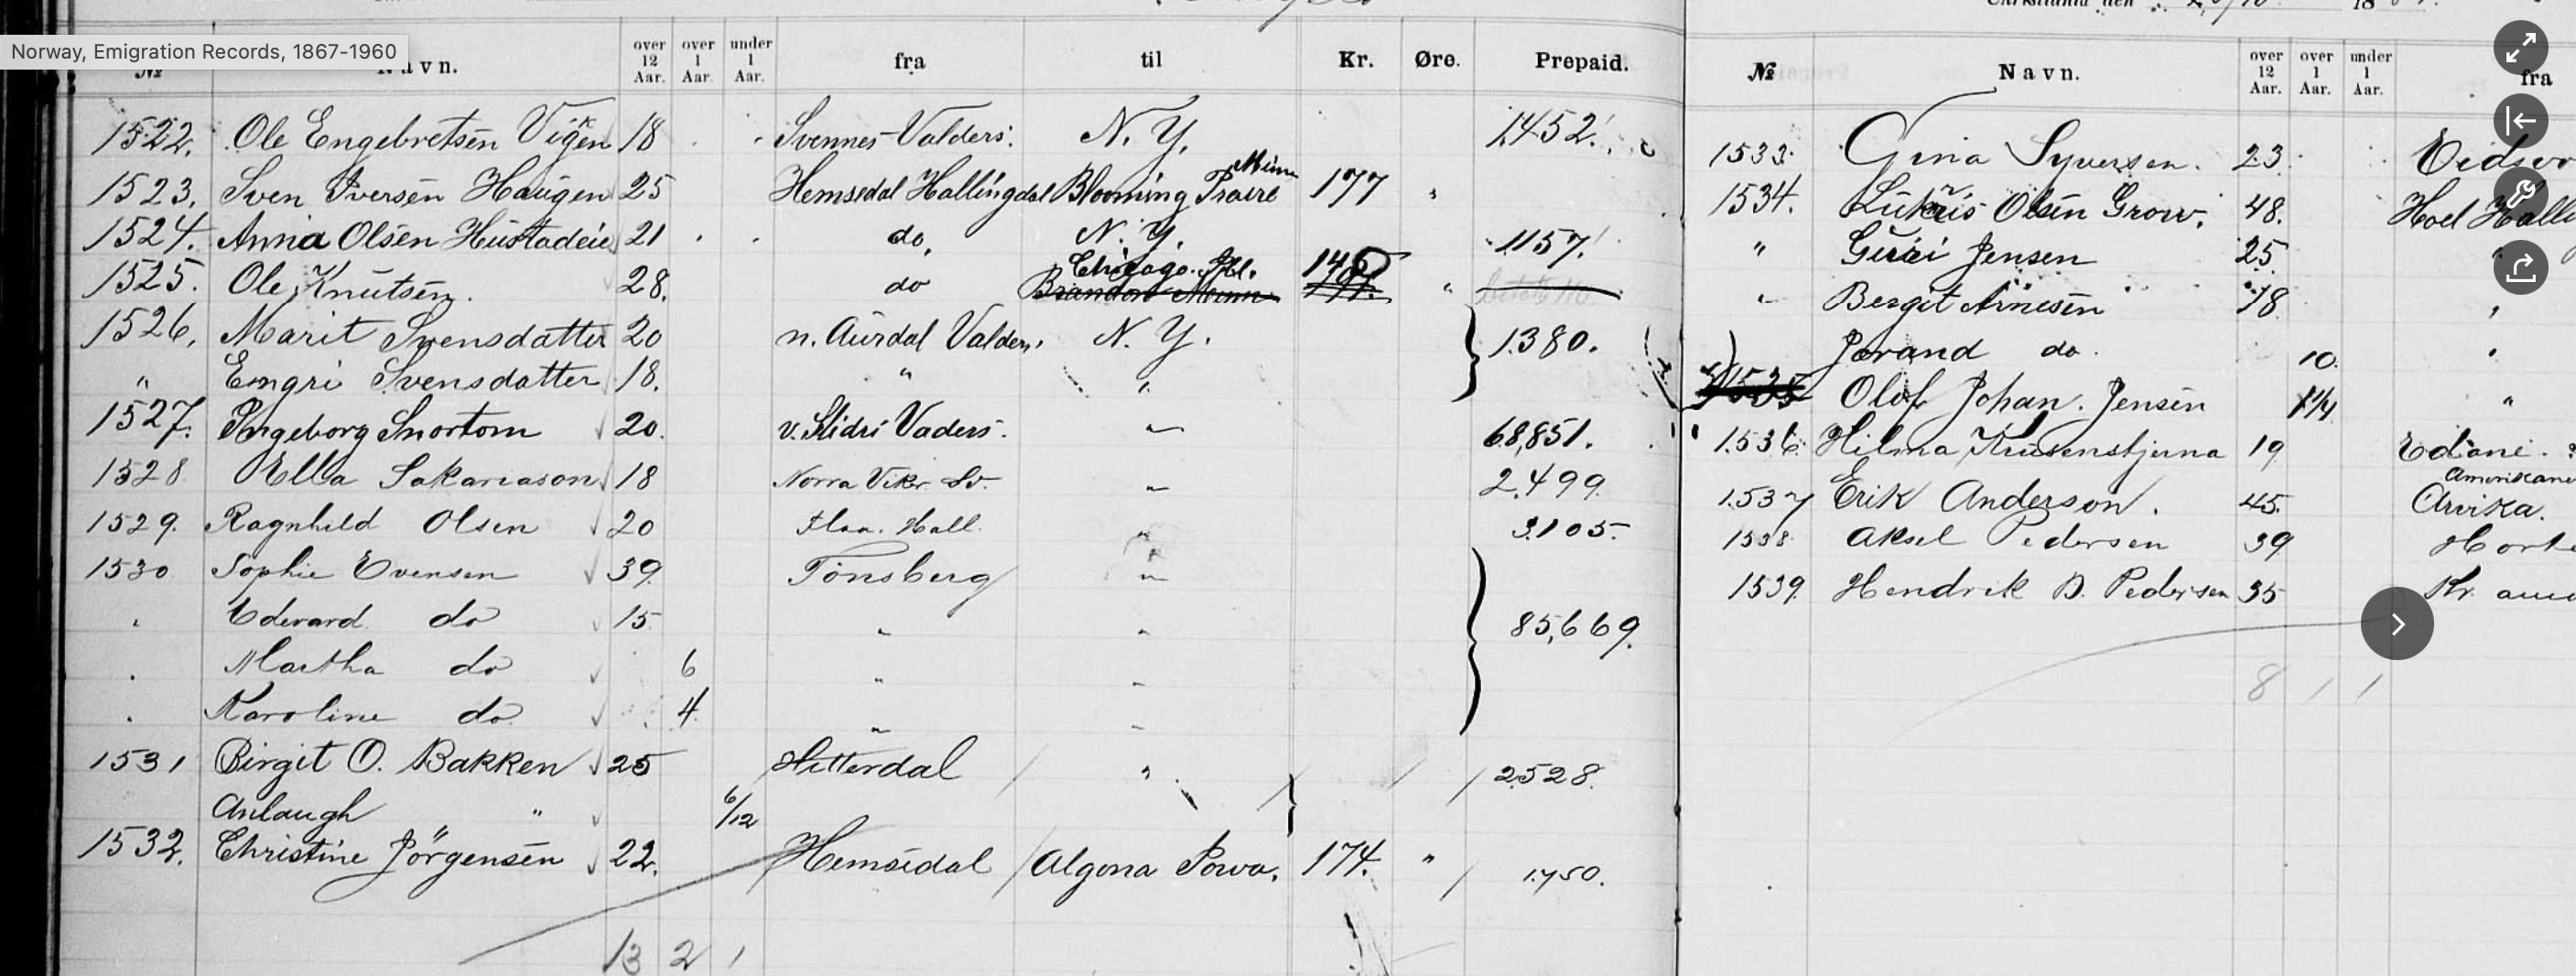 Norway, Emigration Records, 1867-1960
Christiania den 18
№ Navn. over 12 Aar. over 1 Aar. under 1 Aar. fra til Kr. Øre. Prepaid.
1522. Ole Engebretsen Vigen 18 Svennes Valders. N. Y. 1452.
1523. Sven Iversen Haugen 25 Hemsedal Hallingdal Blooming Praire Minn 177 "
1524. Anna Olsen Hustadeie 21 do. N. Y. 1157.
1525. Ole Knutsen. 28. do Chicago. Ill. 145 "
Brandon Minn
1526. Marit Svensdatter 20 n. Aurdal Valders. N. Y. 1380.
" Engri Svensdatter 18. " "
1527. Ingeborg Snortom 20. v. Slidri Vaders. " 68,851.
1528 Ella Sakariason 18 Norra Vikr. Sv. " 2,499.
1529. Ragnhild Olsen 20 Flaa. Hall. " 3105.
1530 Sophie Evensen 39 Tönsberg "
" Edevard do 15 " " 85,669.
" Martha do 6 " "
" Karoline do 4 " "
1531 Birgit O. Bakken 25 Hitterdal " 2528.
Anlaugh " 6/12
1532. Christine Jörgensen 22. Hemsedal Algona Iowa. 174. " 1750.
13 2 1
№ Navn. over 12 Aar. over 1 Aar. under 1 Aar. fra
1533. Gina Syversen. 23
1534. Olsen Grow. 48. Hoel
" Guri Jensen 25 "
" Bergit Arnesen 18 "
Jorand do. 10. "
1535 Olof Johan. Jensen 1 1/4 "
1536. Hilma Krusenstjerna 19 Edane.
1537 Erik Anderson. 45. Amerikane
Arvika.
1538 Aksel Pedersen 39
1539. Hendrik D. Pedersen 35 Kr.
8 1 1